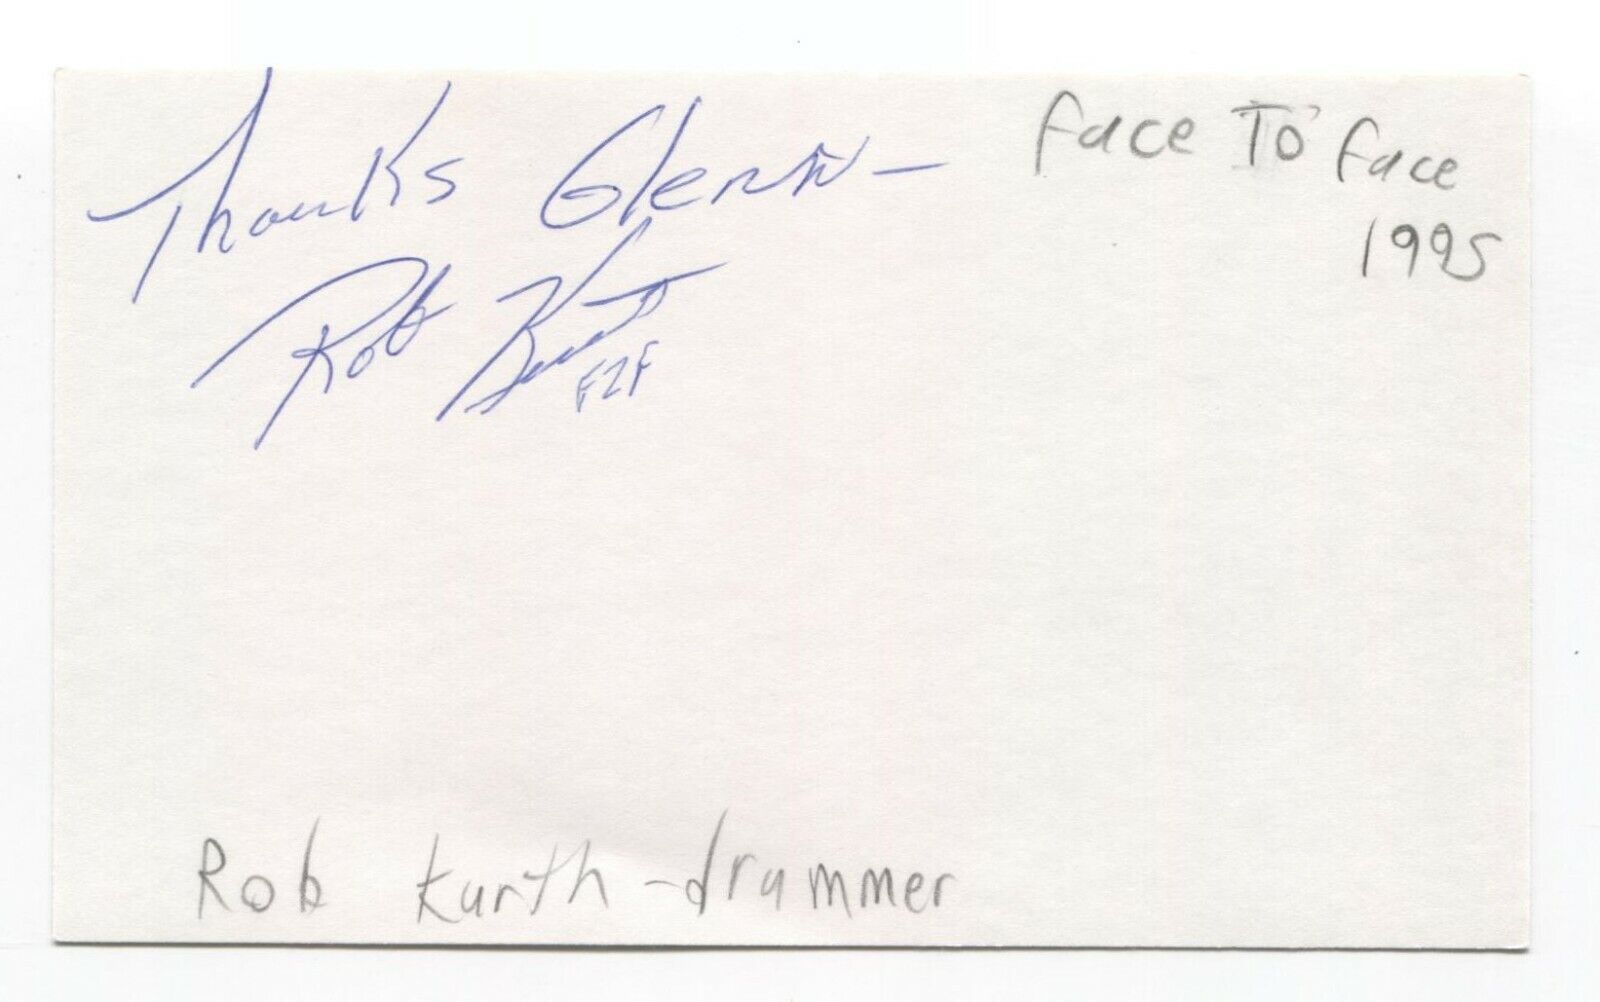 Thanks Glenn –
Rob Kurth
F2F
Face To Face
1995
Rob Kurth - drummer